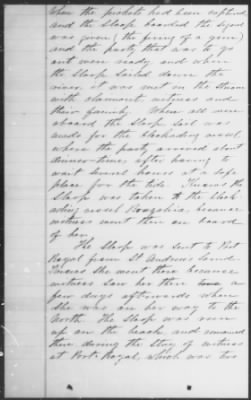 when the pickets had been captured
and the Sloop boarded the signal
was given (the firing of a gun)
and the party that was to go
out were ready and when
the Sloop sailed down the
river, it was met in the stream
with claimant, witness and
their family. When all were
aboard the Sloop sail was
made for the blockading vessel
where the party arrived about
dinner-time, after having to
wait several hours at a safe
place for the tide. Knows the
Sloop was taken to the block
ading vessel because
witness went then on board
of her.
The Sloop was sent to Port
Royal from St Andrews Sound.
Knows she went there because
witness saw her there a
few days afterwards when
she was on her way to the
North. The Sloop was run
up on the beach and remained
there during the stay of witness
at Port Royal, which was two